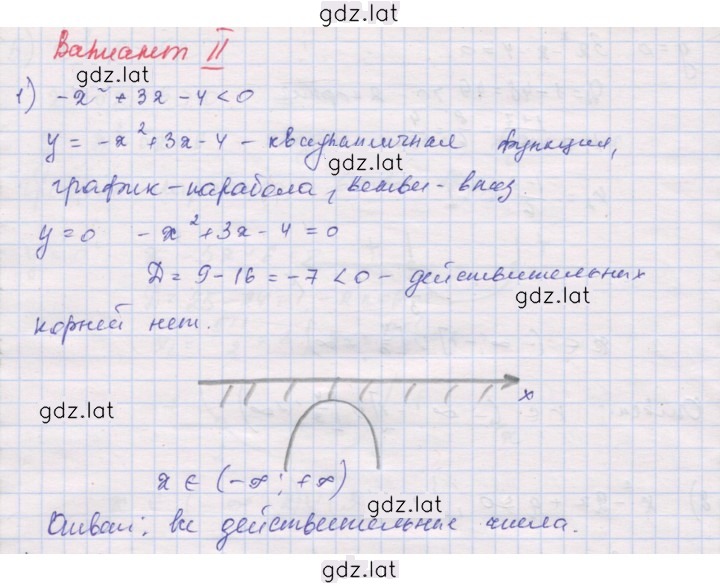 gdz.lat
Вариант II
gdz.lat
1) -x² + 3x - 4 < 0
y = -x² + 3x - 4 - квадратичная функция,
gdz.lat
график - парабола, ветви - вниз.
y = 0 -x² + 3x - 4 = 0
Д = 9 - 16 = -7 < 0 - действительных
gdz.lat
корней нет.
x
gdz.lat
x ∈ (-∞; +∞)
gdz.lat
Ответ: все действительные числа.
gdz.lat